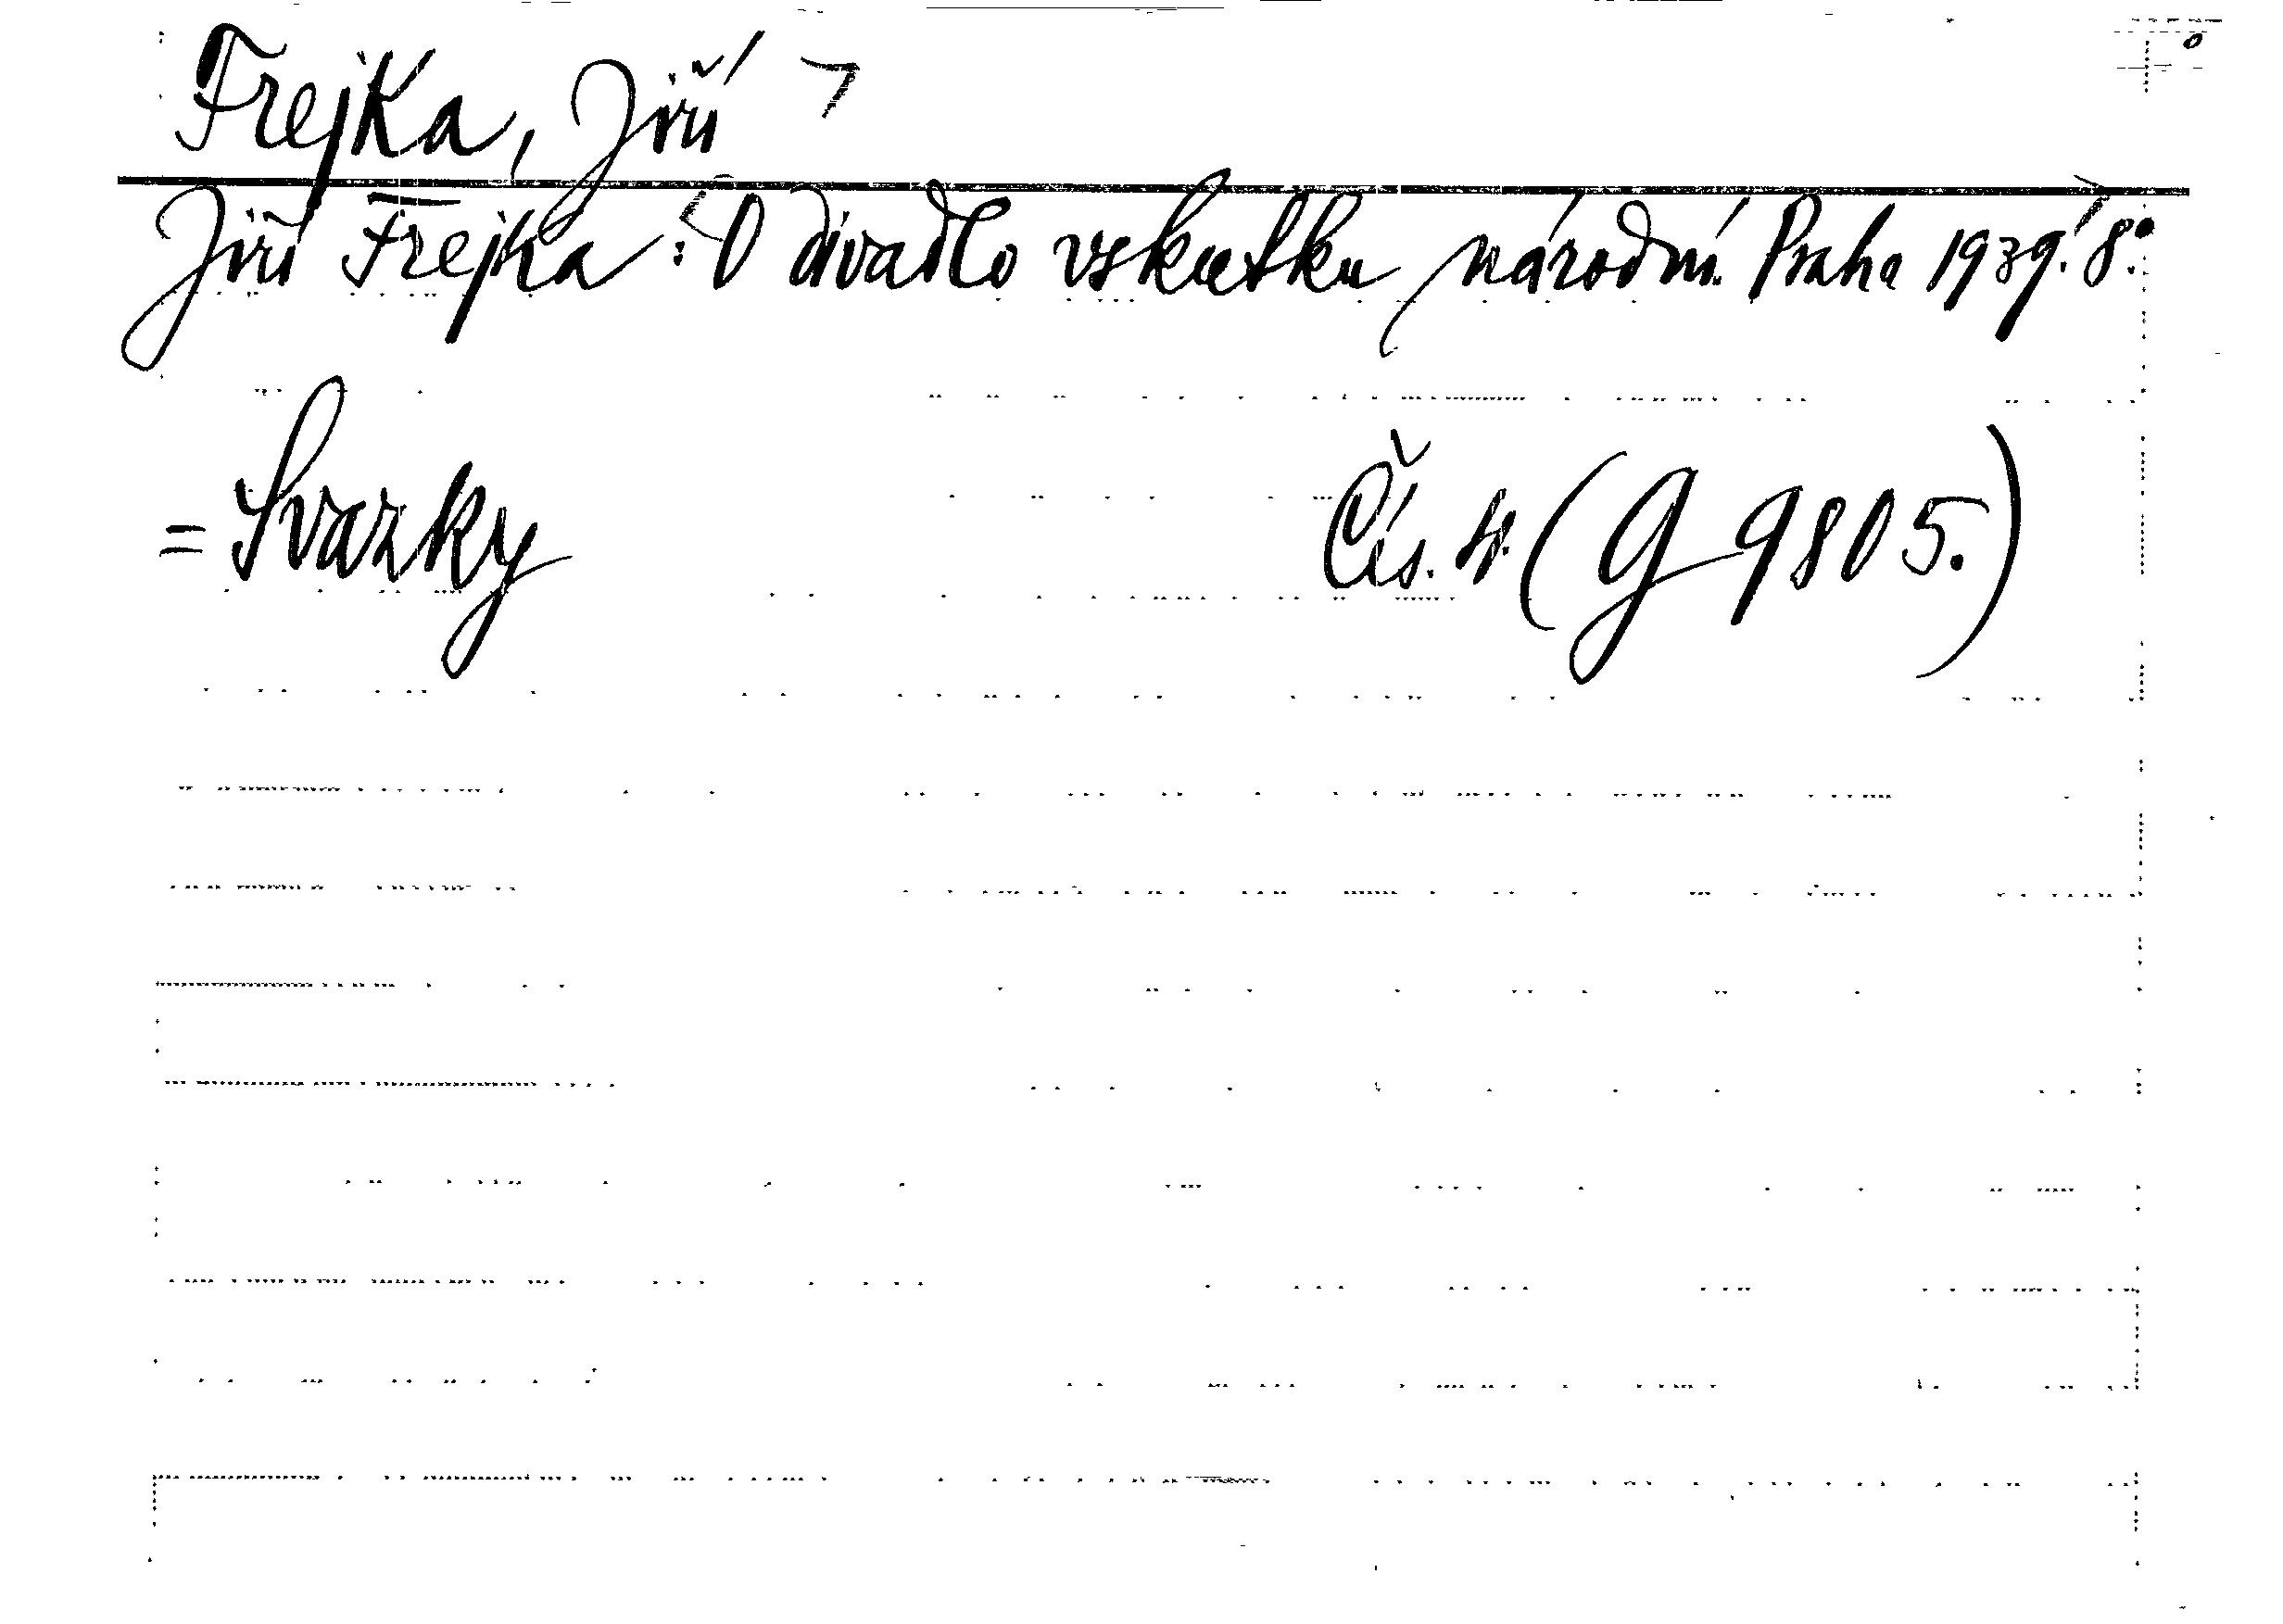 Frejka, Jiří
Jiří Frejka: O divadlo vskutku národní. Praha 1939. 8°
= Svazky Čís. 4. (G 9805.)